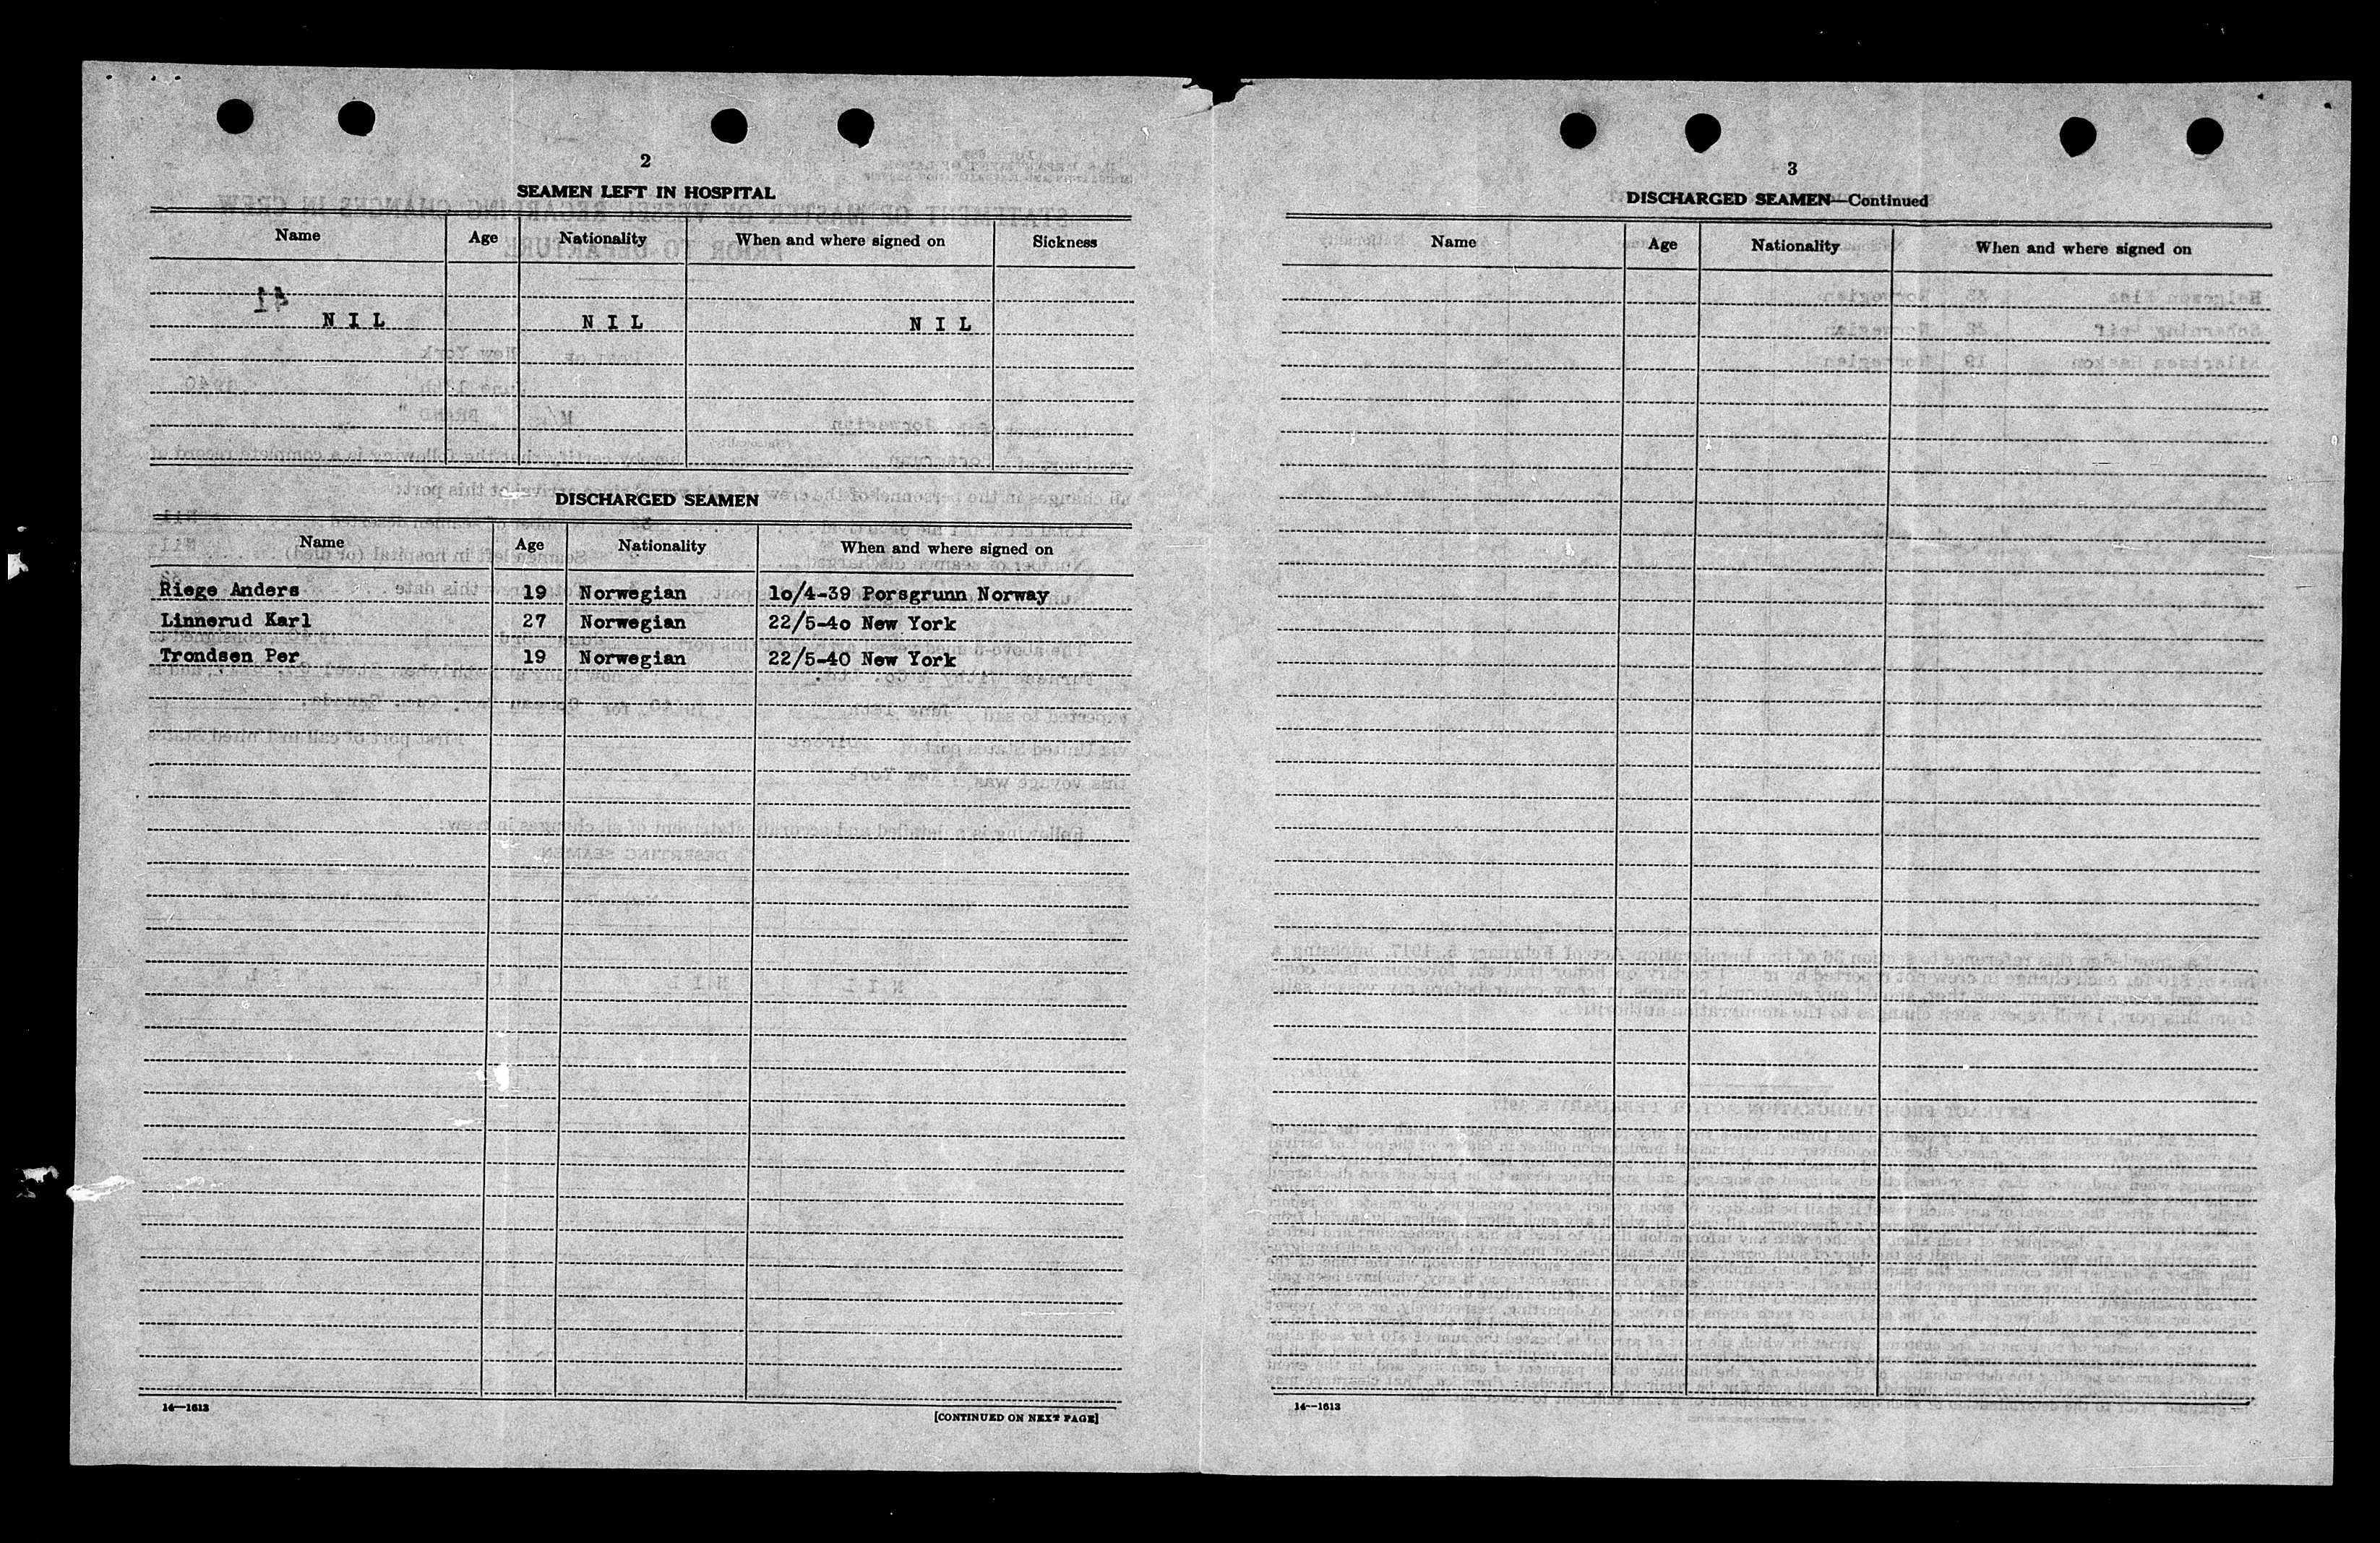 2
SEAMEN LEFT IN HOSPITAL
Name Age Nationality When and where signed on Sickness
N I L N I L N I L
DISCHARGED SEAMEN
Name Age Nationality When and where signed on
Riege Anders 19 Norwegian 1o/4-39 Porsgrunn Norway
Linnerud Karl 27 Norwegian 22/5-4o New York
Trondsen Per 19 Norwegian 22/5-40 New York
14—1613
[CONTINUED ON NEXT PAGE]
3
DISCHARGED SEAMEN—Continued
Name Age Nationality When and where signed on
14—1613